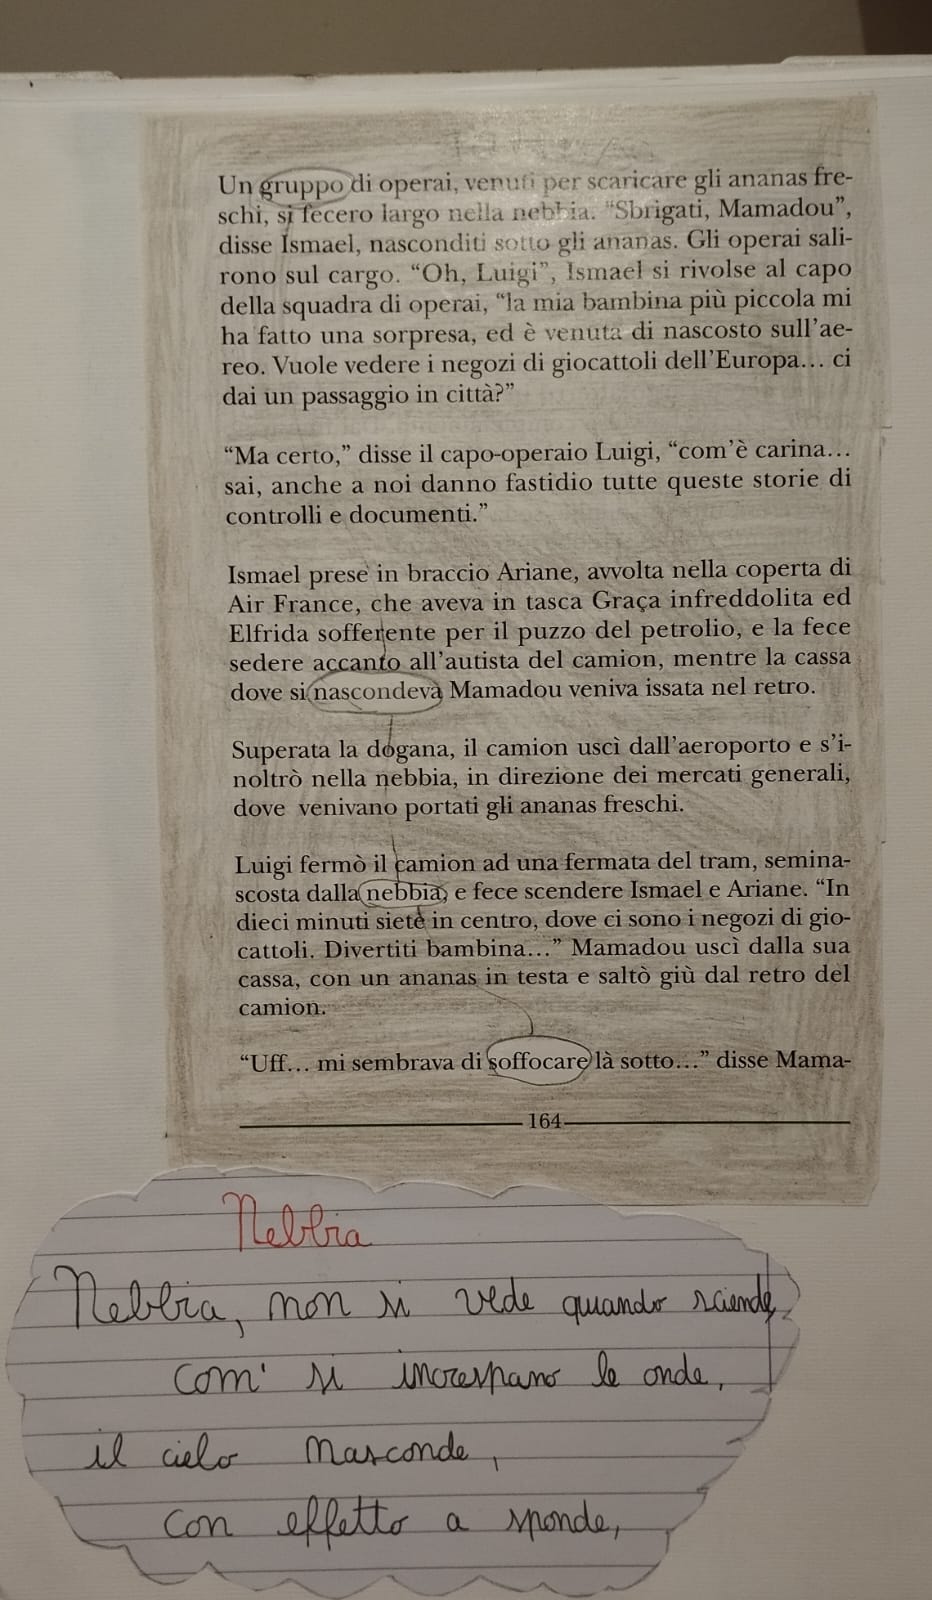 Un gruppo di operai, venuti per scaricare gli ananas fre-
schi, si fecero largo nella nebbia. “Sbrigati, Mamadou”,
disse Ismael, nasconditi sotto gli ananas. Gli operai sali-
rono sul cargo. “Oh, Luigi”, Ismael si rivolse al capo
della squadra di operai, “la mia bambina più piccola mi
ha fatto una sorpresa, ed è venuta di nascosto sull’ae-
reo. Vuole vedere i negozi di giocattoli dell’Europa… ci
dai un passaggio in città?”
“Ma certo,” disse il capo-operaio Luigi, “com’è carina…
sai, anche a noi danno fastidio tutte queste storie di
controlli e documenti.”
Ismael prese in braccio Ariane, avvolta nella coperta di
Air France, che aveva in tasca Graça infreddolita ed
Elfrida sofferente per il puzzo del petrolio, e la fece
sedere accanto all’autista del camion, mentre la cassa
dove si nascondeva Mamadou veniva issata nel retro.
Superata la dogana, il camion uscì dall’aeroporto e s’i-
noltrò nella nebbia, in direzione dei mercati generali,
dove venivano portati gli ananas freschi.
Luigi fermò il camion ad una fermata del tram, semina-
scosta dalla nebbia, e fece scendere Ismael e Ariane. “In
dieci minuti siete in centro, dove ci sono i negozi di gio-
cattoli. Divertiti bambina…” Mamadou uscì dalla sua
cassa, con un ananas in testa e saltò giù dal retro del
camion.
“Uff… mi sembrava di soffocare là sotto…” disse Mama-
164
Nebbia
Nebbia, non si vede quando sciende,
com' si increspano le onde,
il cielo nasconde,
con effetto a sponde,